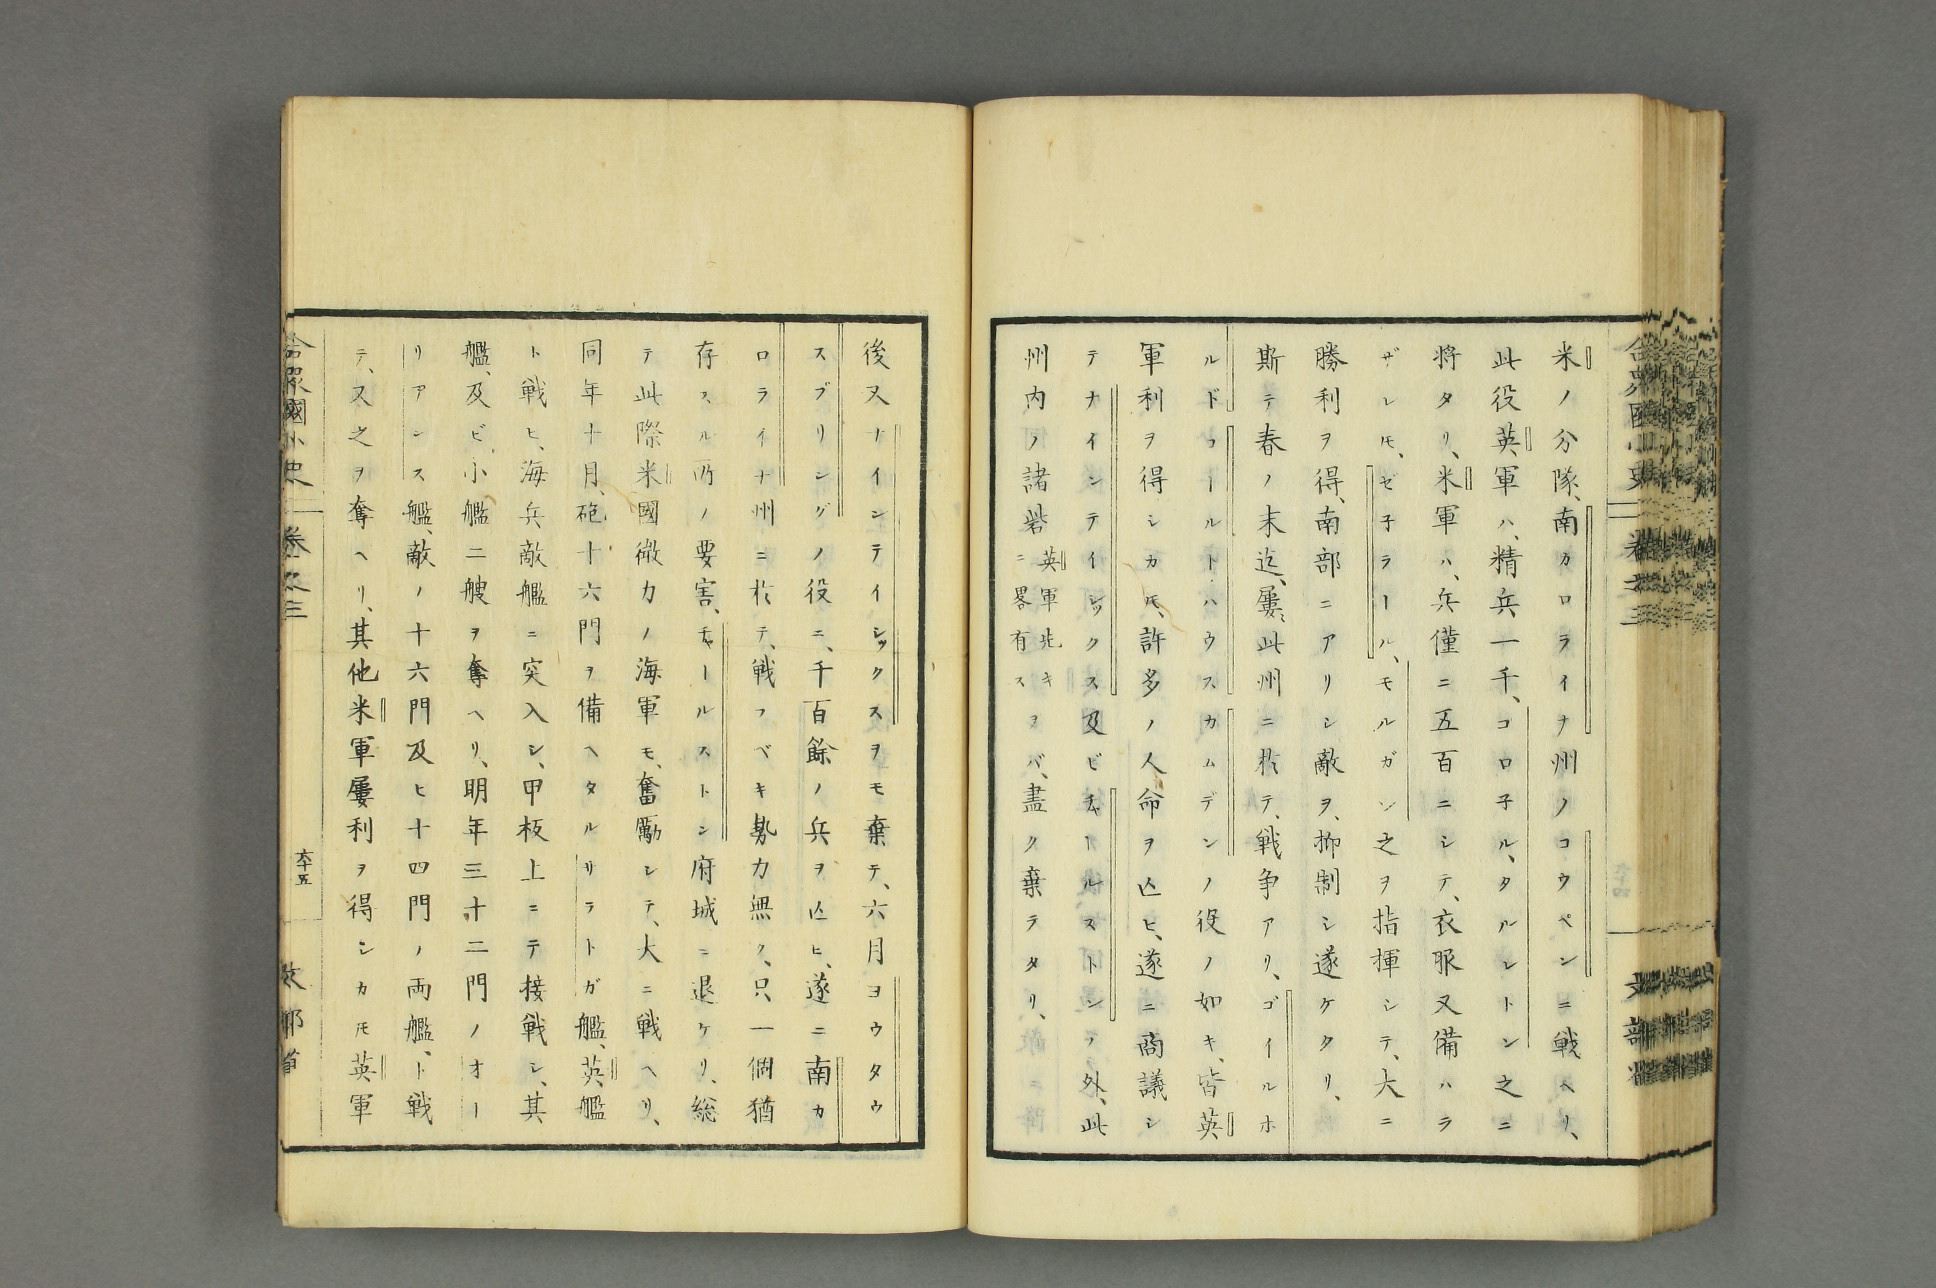 米ノ分隊、南カロライナ州ノコウペンニ戦ヘリ、
此役英軍ハ、精兵一千、コロ子ル、タルレトン之ニ
将タリ、米軍ハ、兵僅ニ五百ニシテ、衣服又備ハラ
ザレ𪜈、ゼ子ラール、モルガン之ヲ指揮シテ、大ニ
勝利ヲ得、南部ニアリシ敵ヲ、抑制シ遂ケタリ、
斯テ春ノ末迄、屢〻此州ニ於テ、戦争アリ、ゴイルホ
ルドコールトハウスカムデンノ役ノ如キ、皆英
軍利ヲ得シカ𪜈、許多ノ人命ヲ亡ヒ、遂ニ商議シ
テナインテイシックス及ビチャールストンノ外、此
州内ノ諸砦英軍先キニ畧有スヲバ、盡ク棄ラタリ、
合衆國小史 卷之三
文部省
後又ナインテイシックスヲモ棄テ、六月ヨウタウ
スブリングノ役ニ、千百餘ノ兵ヲ亡ヒ、遂ニ南カ
ロライナ州ニ於テ、戦フベキ勢力無ク、只一個猶
存スル所ノ要害、チャールストン府城ニ退ケリ、総
テ此際米國微力ノ海軍モ、奮勵シテ、大ニ戦ヘリ、
同年十月、砲十六門ヲ備ヘタルサラトガ艦、英艦
ト戦ヒ、海兵敵艦ニ突入シ、甲板上ニテ接戦シ、其
艦、及ビ、小艦二艘ヲ奪ヘリ、明年三十二門ノオー
リアンス艦、敵ノ十六門及ヒ十四門ノ両艦、ト戦
テ、又之ヲ奪ヘリ、其他米軍屢利ヲ得シカ𪜈英軍
合衆國小史 卷之三
六十五
文部省